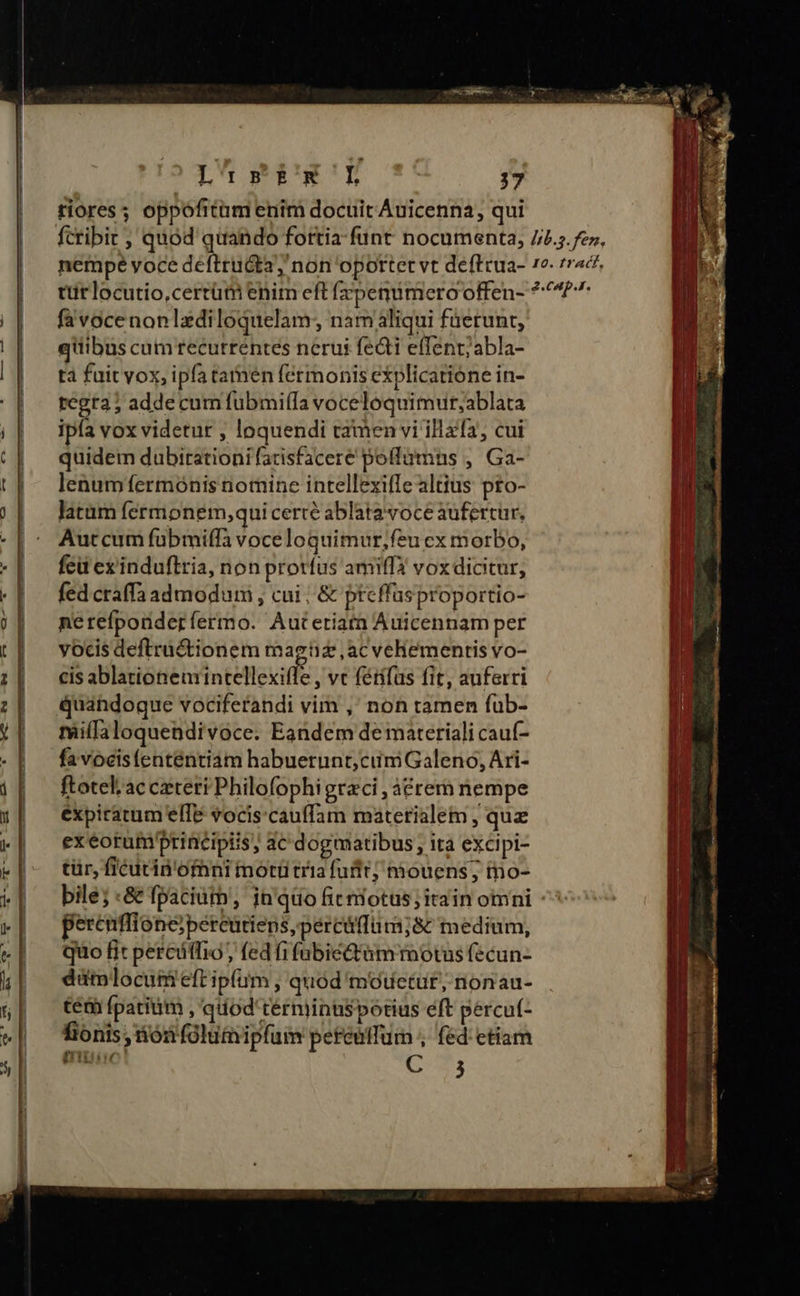 LIBER I. 37
riores; oppoſitum enim docuit Auicenna, qui
ſcribit, quod quando fortia ſunt nocumenta, lib.3. fen.
nempè voce deſtructa, non oportet vt deſtrua- 10. tract.
tur locutio, certùm enim eſt ſæpenumero offen- 2. cap. 1.
ſa voce non lædi loquelam, nam aliqui fuerunt,
quibus cum recurrentes nerui ſecti eſſent, abla-
ta fuit vox, ipſa tamen ſermonis explicatione in-
tegra; adde cum ſubmiſſa voce loquimur, ablata
ipſa vox videtur, loquendi tamen vi illæſa, cui
quidem dubitationi ſatisfacere poſſumus, Ga-
lenum ſermonis nomine intellexiſſe altiùs pro-
latum ſermonem, qui certè ablata voce aufertur.
Aut cum ſubmiſſa voce loquimur, ſeu ex morbo,
ſeu ex induſtria, non prorſus amiſſa vox dicitur,
ſed craſſa admodum, cui & preſſus proportio-
ne reſpondet ſermo. Aut etiam Auicennam per
vocis deſtructionem magnæ, ac vehementis vo-
cis ablationem intellexiſſe, vt ſenſus ſit, auferri
quandoque vociferandi vim, non tamen ſub-
miſſa loquendi voce. Eandem de materiali cauſ-
ſa vocis ſententiam habuerunt, cum Galeno, Ari-
ſtotel. ac cæteri Philoſophi græci, aërem nempe
expiratum eſſe vocis cauſſam materialem, quæ
ex eorum principiis, ac dogmatibus, ita excipi-
tur, ſicuti in omni motu tria ſunt, mouens, mo-
bile; & ſpacium, in quo fit motus; ita in omni
percuſſione; percutiens, percuſſum, & medium,
quo fit percuſſio, ſed ſi ſubiectum motus ſecun-
dùm locum eſt ipſum, quod mouetur, non au-
tem ſpatium, quod terminus potius eſt percuſ-
ſionis, non ſolùm ipſum percuſſum, ſed etiam
C 3